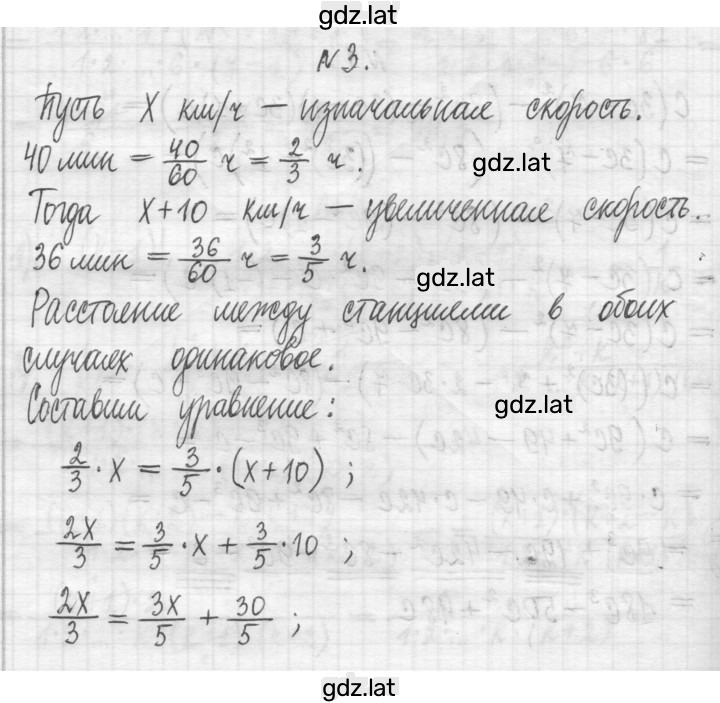 gdz.lat
N 3.
Пусть x км/ч — изначальная скорость.
40 мин = 40/60 ч = 2/3 ч.
gdz.lat
Тогда x+10 км/ч — увеличенная скорость.
36 мин = 36/60 ч = 3/5 ч.
gdz.lat
Расстояние между станциями в обоих
случаях одинаковое.
Составим уравнение:
gdz.lat
2/3 · x = 3/5 · (x+10) ;
2x/3 = 3/5 · x + 3/5 · 10 ;
2x/3 = 3x/5 + 30/5 ;
gdz.lat